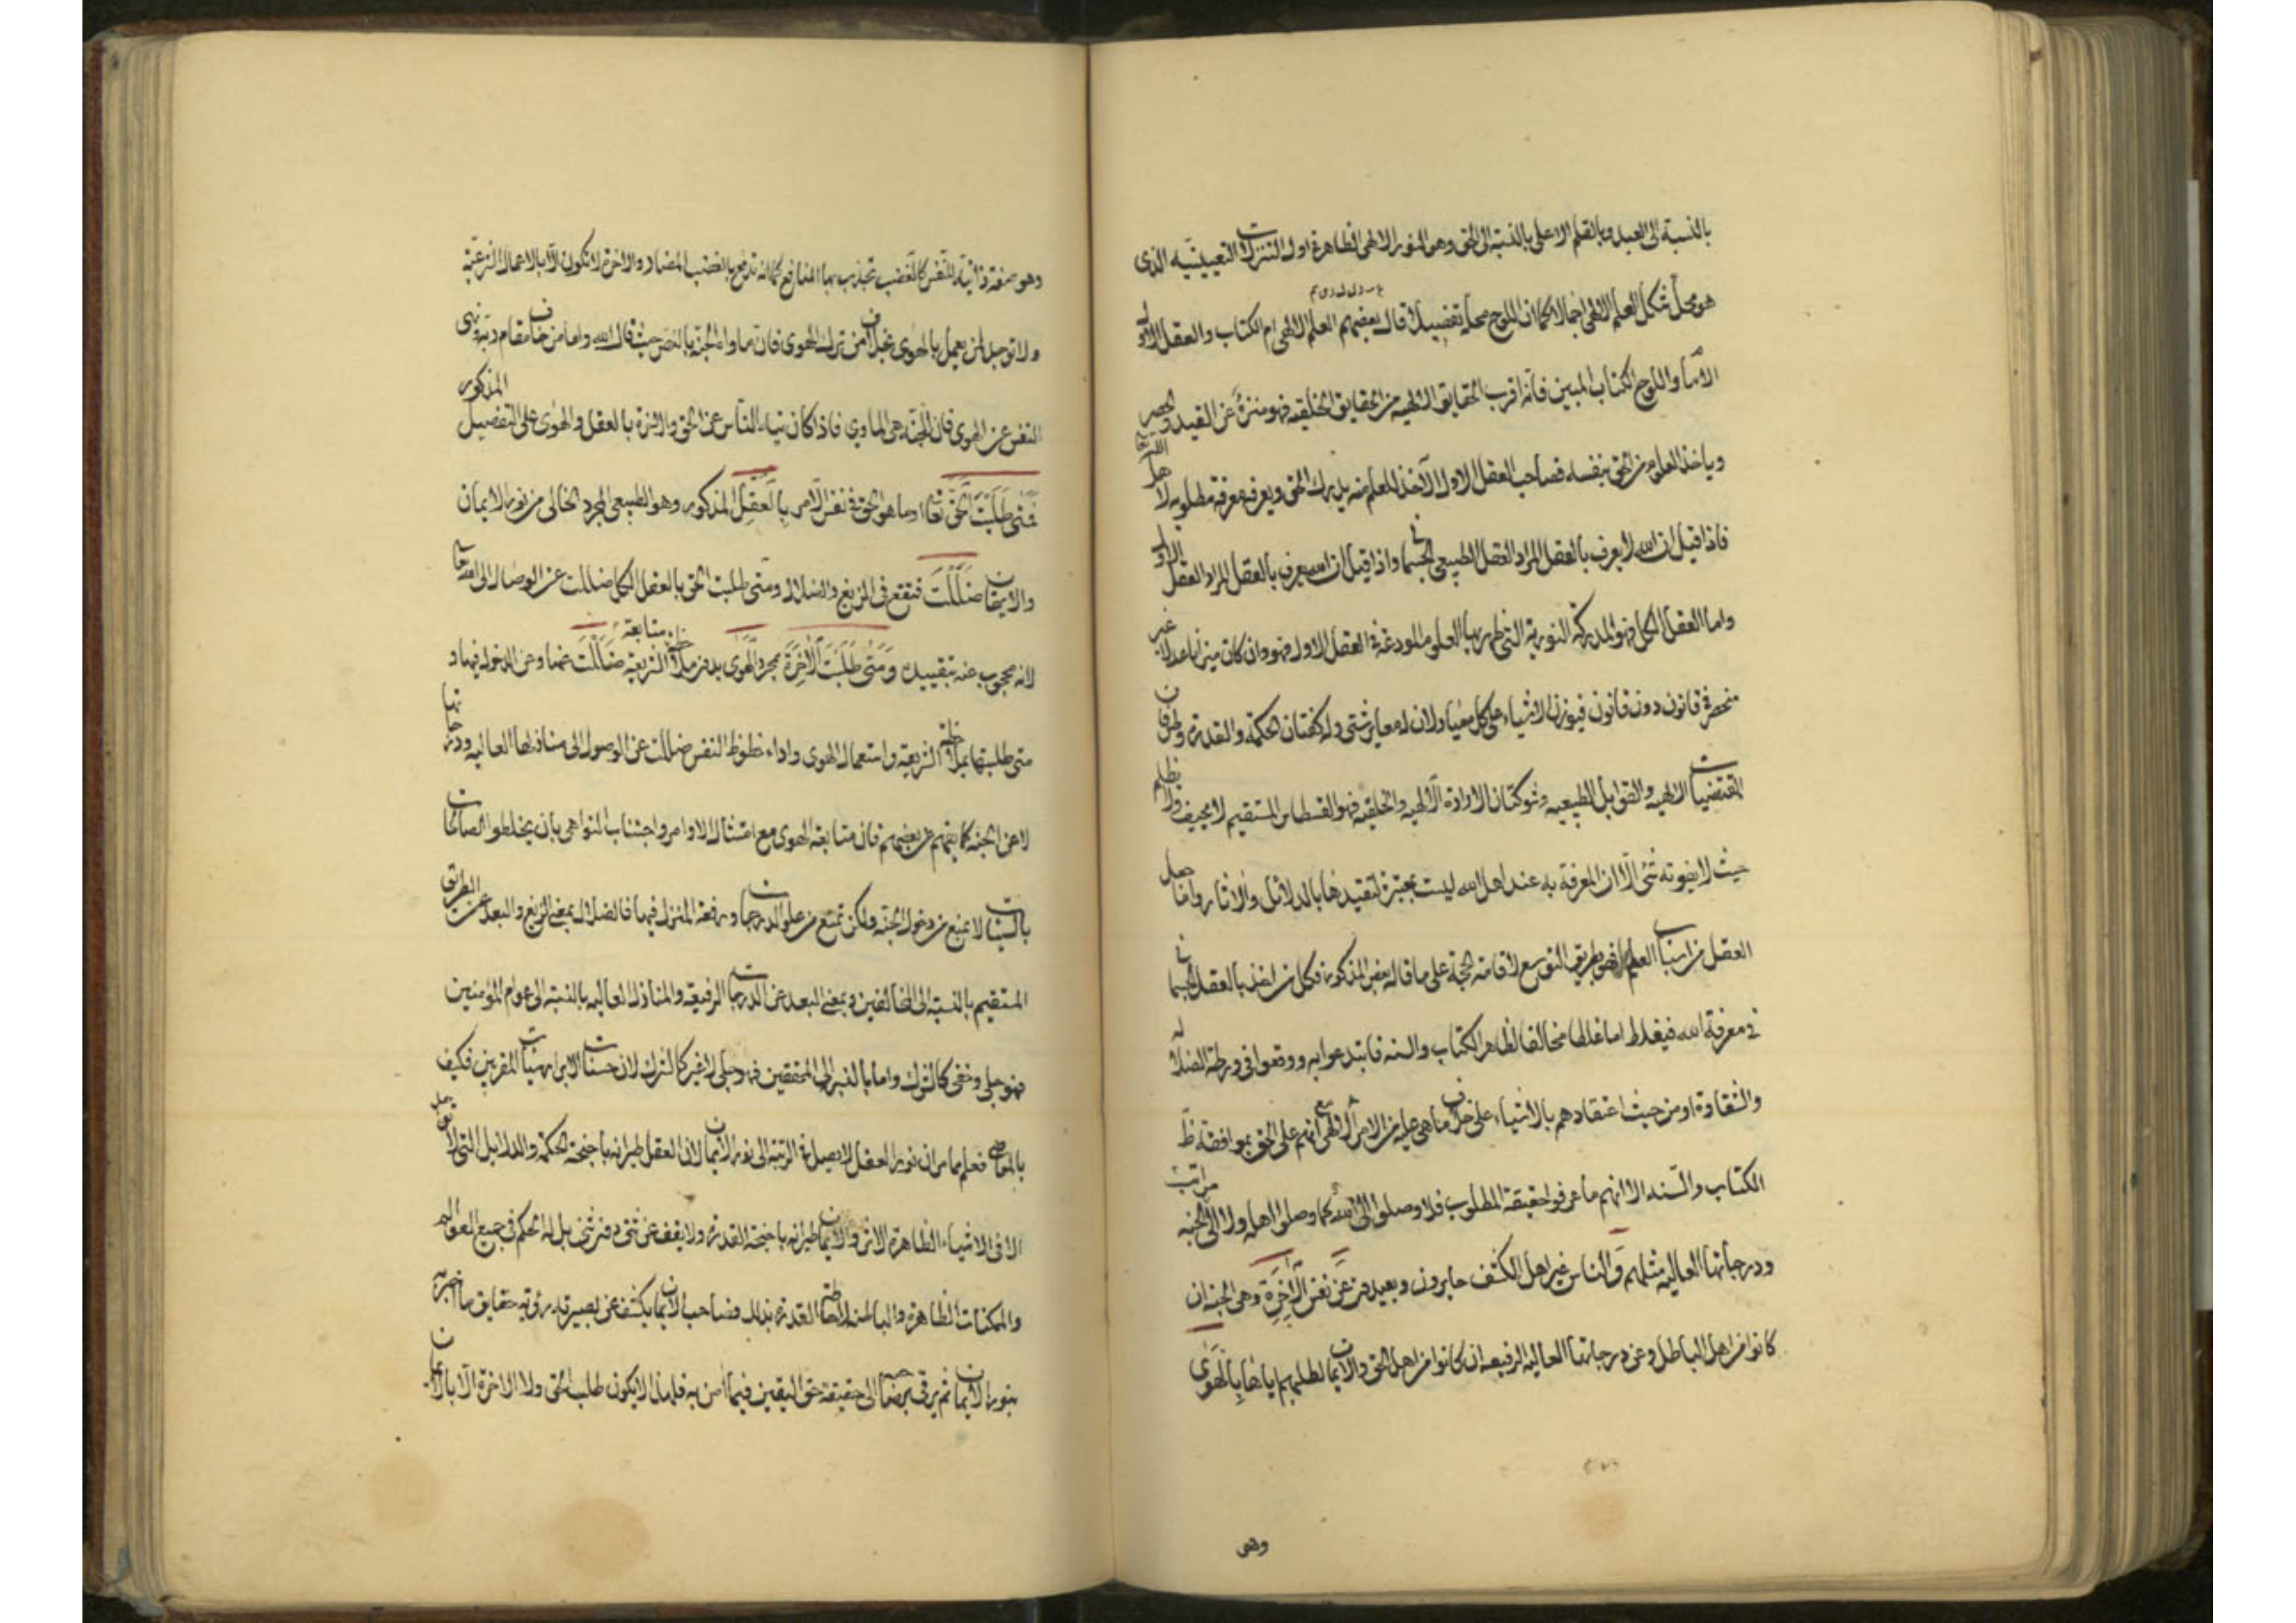 بالنسبة الى العبد وبالقلم الاعلى بالنسبة الى الحق وهو النور الالهى الظاهر فى اول التنزلات التعيينيه الذى
هو محل تشكل العلم الالهى اجمالا كما ان اللوح محله تفصيلا قال بعضهم العلم الالهى ام الكتاب والعقل الاول
الامام واللوح الكتاب المبين فانه اقرب الحقايق الالهيه من الحقايق الخلقيه فهو منزه عن القيد والحصر
وياخذ العلوم من الحق بنفسه فصاحب العقل الاول الآخذ للعلم منه يدرك الحق ويعرفه معرفة مطلوبه لاهل الله تعالى
فاذا قيل ان الله لا يعرف بالعقل المراد العقل الطبيعى الجسمانى واذا قيل ان الله يعرف بالعقل المراد العقل الاول
واما العقل الكل فهو المدركة النورية التى ظهر بها العلوم المودعة فى العقل الاول فهو وان كان ميزانا عدلا غير
منحصر فى قانون دون قانون فيوزن الاشياء على كل معيار لان له معاير شتى وله كفتان الحكمة والقدرة وطرفان
المقتضيات الالهيه والقوابل الطبيعيه وشوكتان الارادة الالهيه والخلقيه فهو القسطاس المستقيم لا يحيف ولا يظلم
حيث لا يفوته شئ الا ان المعرفة به عند اهل الله ليست بمعتبرة لتقيدها بالدلائل والآثار واما جعل
العقل من اسباب العلم فهو بطريق التوسع لاقامة الحجة على ما قاله بعض المذكور فكل من اخذ بالعقل الجسمانى
فى معرفة الله فيغلط اما غلطا مخالفا لظاهر الكتاب والسنه فابتدعوا به ووقعوا فى ورطة الضلاله
والشقاوة او من حيث اعتقادهم بالاشياء على خلاف ما هى عليه من الامر الالهى مع انهم على الحق بموافقة ظ
الكتاب والسنه الا انهم ما عرفوا حقيقة المطلوب فلا وصلوا الى الله كما وصلوا اهله ولا الى الجنه مراتب
ودرجاتها العاليه مثلهم والناس غير اهل الكشف حايرون وبعيدون عن نفس الآخرة وهى الجنه ان
كانوا من اهل الباطل وعن درجاتها العاليه الرفيعه ان كانوا من اهل الحق والايمان لطلبهم اياها بالهوى
وهى
وهو صفة ذاتية للنفس كالغضب تجذب بها المنافع كما انه تدفع بالغضب المضار والآخرة لا تكون الا بالاعمال الشرعية
ولا توجد لمن يعمل بالهوى بخلاف من ترك الهوى فان ماواه الجنة بالنص حيث قال الله واما من خاف مقام ربه ونهى
النفس عن الهوى فان الجنة هى الماوى فاذا كان تيه الناس عن الحق والآخرة بالعقل والهوى على التفصيل المذكور
فمتى طلبت الحق تعالى او ما هو الحق فى نفس الامر بالعقل المذكور وهو الطبيعى المجرد الخالى من نور الايمان
والايقان ضللت فتقع فى الزيغ والضلال ومتى طلبت الحق بالعقل الكل ضللت عن الوصال الى الله تعالى
لانه محجوب عنه بتقييده ومتى طلبت الآخرة بمجرد الهوى بدون ملاحظة متابعة الشريعة ضللت عنها وعن الدخول فيها و
متى طلبتها بملاحظة الشريعة واستعمال الهوى واداء حظوظ النفس ضللت عن الوصول الى منازلها العاليه ودرجاتها
لا عن الجنه كما يفهم عن بعضهم فان متابعة الهوى مع امتثال الاوامر واجتناب النواهى بان يخلطوا الصالحات
بالسيئات لا تمنع من دخول الجنه ولكن تمنع من علو الدرجات ورفعة المنزل فيها فالضلال بمعنى الزيغ والبعد عن الطريق
المستقيم بالنسبة الى المخالفين وبمعنى البعد عن الدرجات الرفيعه والمنازل العاليه بالنسبة الى عوام المؤمنين
فهو جلى وخفى كالشرك واما بالنسبة الى المحققين فهو جلى لا غير كالشرك لان حسنات الابرار سيئات المقربين فكيف
بالمعاصى فعلم مما مر ان نور العقل لا يصل فى الرتبة الى نور الايمان لان العقل طيرانه باجنحة الحكمة والدلايل التى لا توجد
الا فى الاشياء الظاهرة الاثر والايمان طيرانه باجنحة القدرة ولا يقف عن شئ دون شئ بل له الحكم فى جميع العوالم
والممكنات الظاهرة والباطنه لاحاطة القدرة بذلك فصاحب الايمان يكشف عن بصيرته رؤية حقايق ما اخبر به
بنور الايمان ثم يرقى بصاحبه الى حقيقة حق اليقين فيما آمن به فلهذا لا يكون طلب الحق ولا الآخرة الا بالايمان